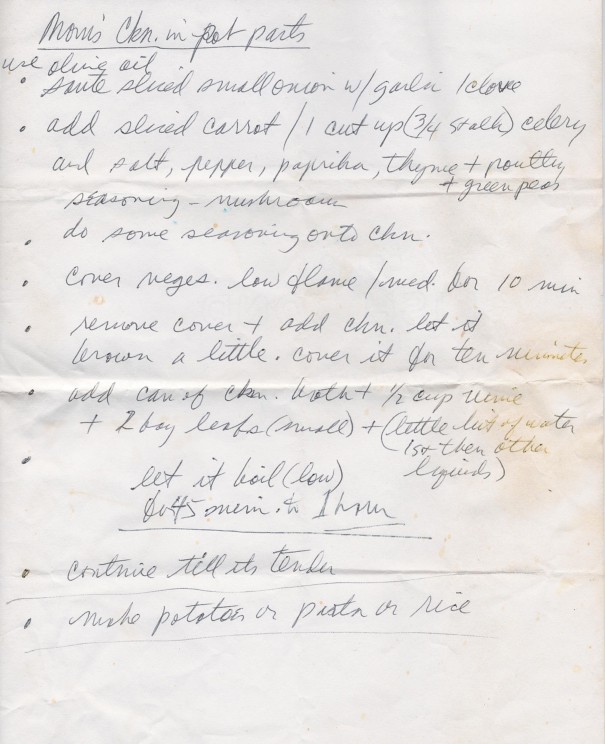 Mom's Ckn. in pot parts
use olive oil
• saute sliced small onion w/ garlic 1 clove
• add sliced carrot / 1 cut up (3/4 stalk) celery
and salt, pepper, paprika, thyme + poultry
+ green peas
seasoning - mushroom
• do some seasoning onto ckn.
• cover veges. low flame / med. for 10 min
• remove cover + add ckn. let it
brown a little. cover it for ten minutes
• add can of ckn. broth + 1/2 cup wine
+ 2 bay leafs (small) + (little bit of water
1st then other
liquids)
• let it boil (low)
for 45 min. to 1 hour
• continue till its tender
• make potatoes or pasta or rice